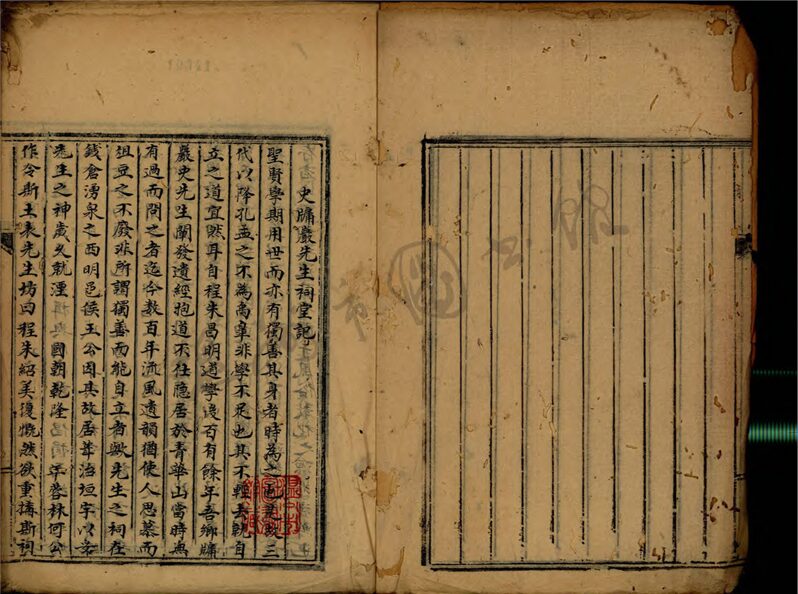 史牖巖先生祠堂記
聖賢學期用世而亦有獨善其身者時為之也三
代以降孔孟之不為禹臯非學不足也其不輕去就自
立之道宜然耳自程朱昌明道學後百有餘年吾鄉牖
巖史先生闡發遺經抱道不仕隱居於青華山當時無
有過而問之者迄今數百年流風遺韻猶使人思慕而
俎豆之不廢非所謂獨善而能自立者歟先生之祠在
錢倉湧泉之西明邑侯王公因其故居葺治垣宇以妥
先生之神歲久就湮國朝乾隆年春林何公
作令斯土表先生坊曰程朱紹美復慨然欲重搆斯祠